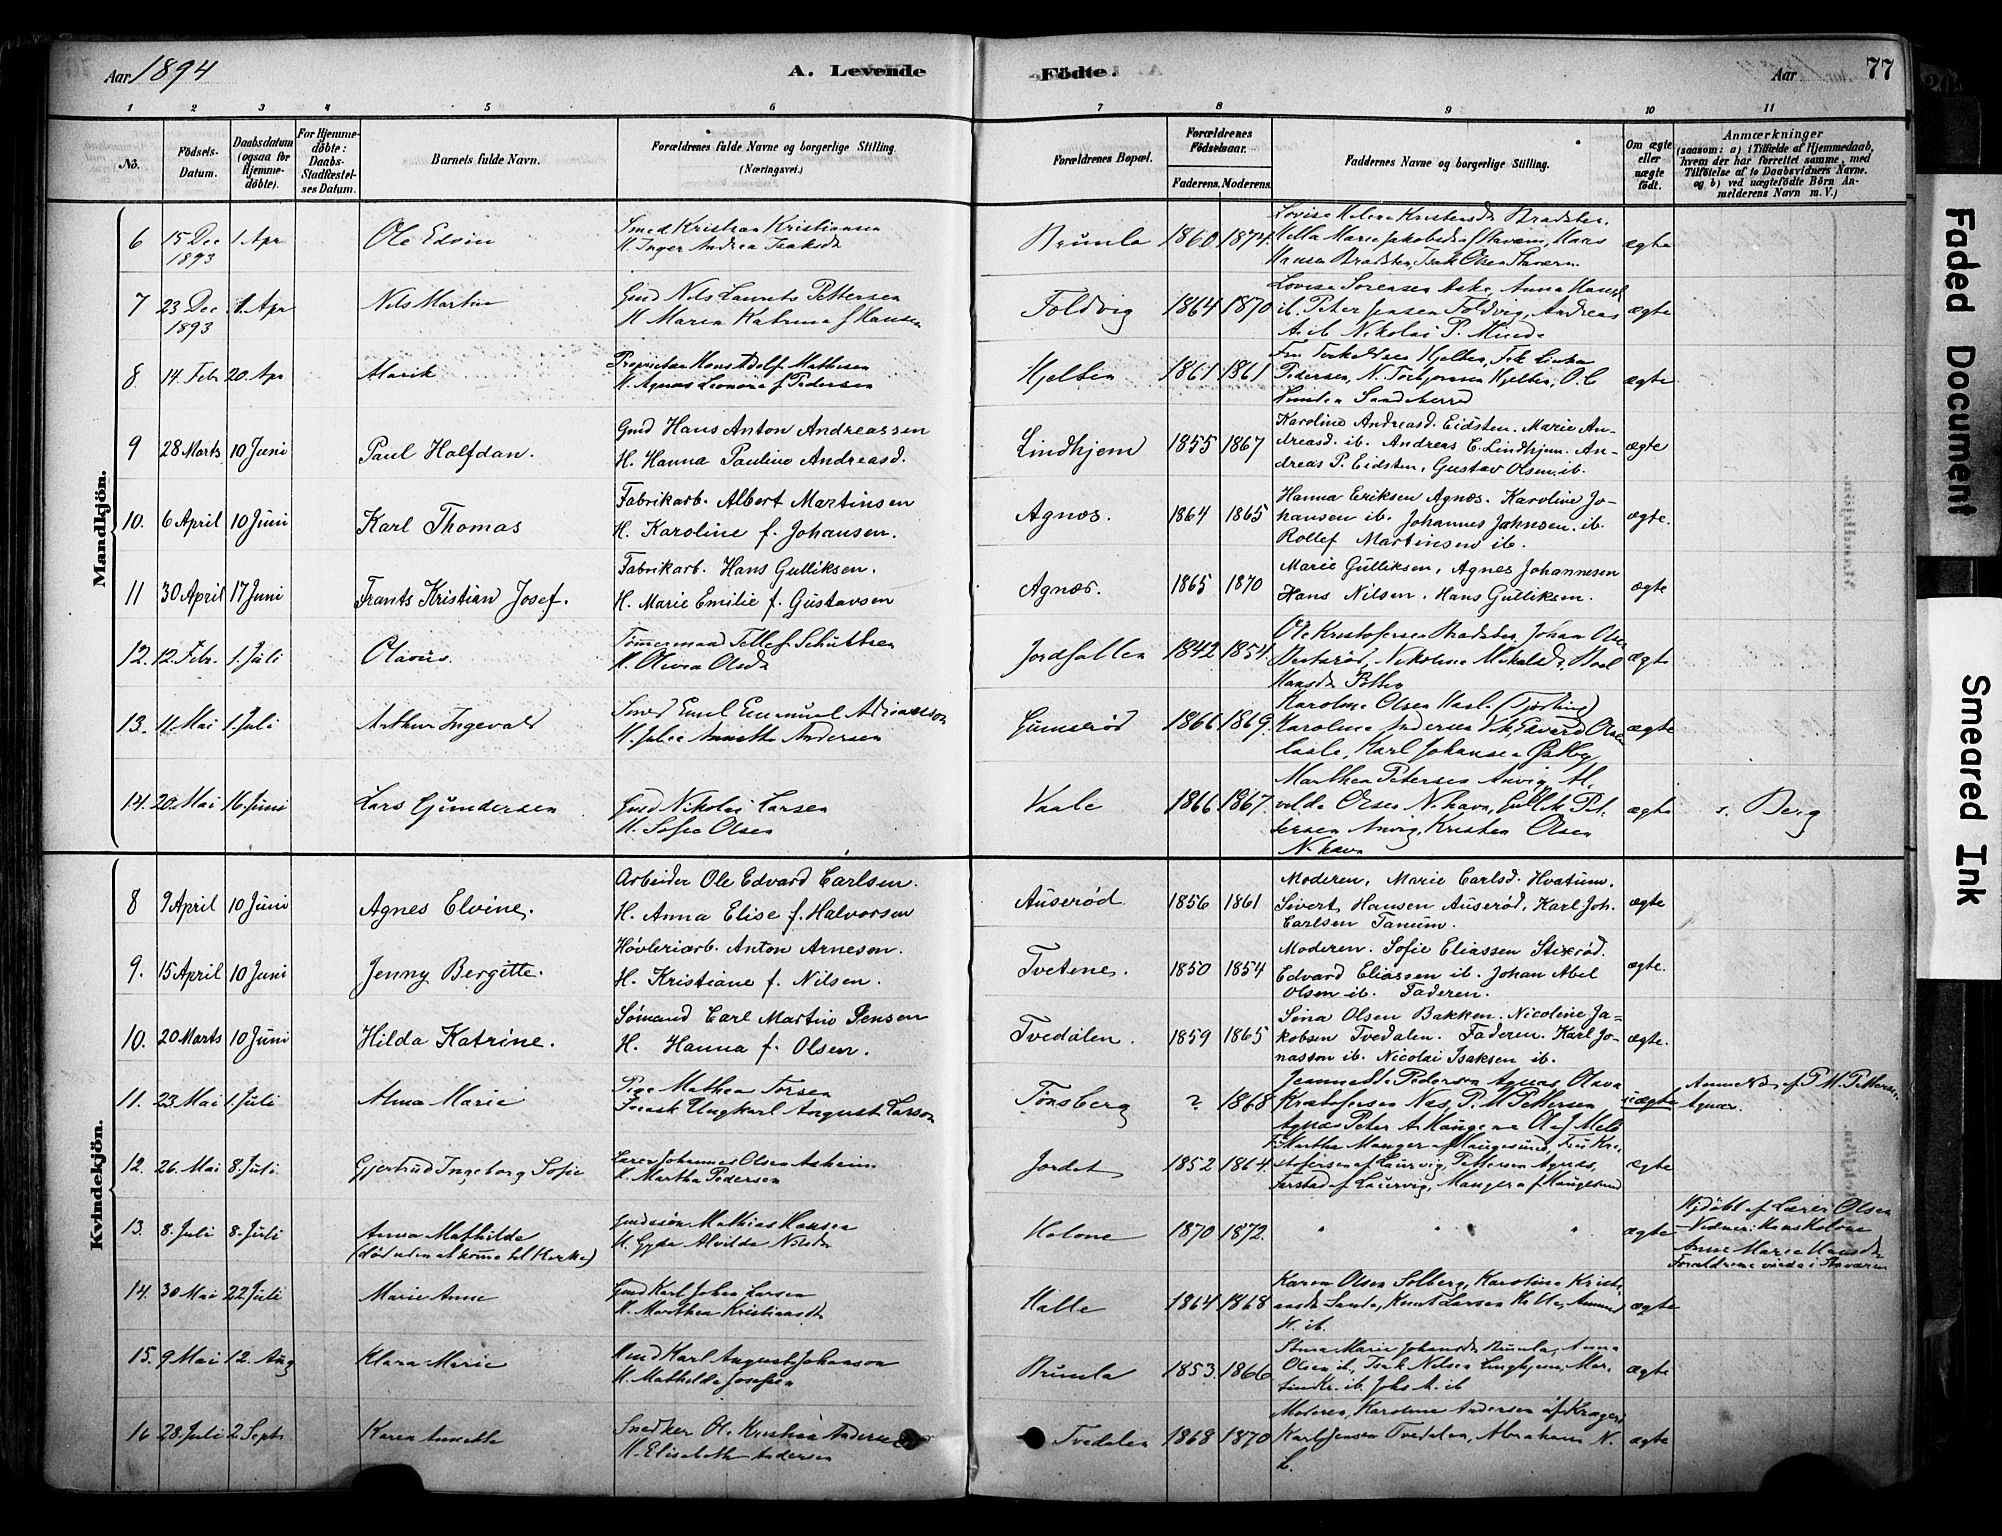 Aar 1894
A. Levende
Födte.
Aar
77
1 2 3 4 5 6 7 8 9 10 11
No.
Födsels-Datum.
Daabsdatum (ogsaa for Hjemme-döbte).
For Hjemme-döbte: Daabs-Stadfæstel-ses Datum.
Barnets fulde Navn.
Forældrenes fulde Navne og borgerlige Stilling. (Næringsvei.)
Forældrenes Bopæl.
Forældrenes Födselsaar.
Faderens. Moderens.
Faddernes Navne og borgerlige Stilling.
Om ægte eller uægte födt.
Anmærkninger
(saasom: a) i Tilfælde af Hjemmedaab, hvem der har forrettet samme, med Tilföielse af to Daabsvidners Navne. og b) ved uægtefödte Börn An-melderens Navn m. V.)
Mandkjön.
6 15 Dec 1893 1 Apr Ole Edvin
Smed Kristian Kristiansen
H. Inger Andrea Isaksdr
Brunla 1860 1874 ægte
7 23 Dec 1893 1 Apr Nils Martin
Gmd Nils Laurits Pettersen
H Maren Katrine f Hansen
Foldvig 1864 1870
Lovise Sorensen Aske, Anna Hansd
ib. Peter Jensen Foldvig, Andreas
A. ib Nikolai P. Minde
ægte
8 14 Febr 20 Apr Alarik
Proprietær Hans Adolf Mathesen
H. Agnes Leonora f Pedersen
Hjelten 1861 1861 ægte
9 28 Marts 10 Juni Paul Halfdan.
Gmd Hans Anton Andreassen
H. Hanna Pauline Andreasd.
Lindhjem 1855 1867
Karoline Andreasd. Eidsten. Marie An-
dreasd. ib. Andreas E. Lindhjem. An-
dreas P. Eidsten, Gustav Olsen ib.
ægte
10. 6 April 10 Juni Karl Thomas
Fabrikarb. Albert Martinsen
H. Karoline f. Johansen.
Agnæs. 1864 1865
Hanna Eriksen Agnæs. Karoline Jo-
hansen ib. Johannes Johnsen. ib.
Rollef Martinsen ib.
ægte.
11 30 April 17 Juni Frants Kristian Josef.
Fabrikarb. Hans Gulliksen.
H. Marie Emilie f. Gustavsen
Agnæs. 1865 1870
Marie Gulliksen, Agnes Johannesen
Hans Nilsen. Hans Gulliksen.
ægte
12. 12. Febr. 1. Juli Olavus.
Tømmermand Tellef Schultsen
H. Olivia Olsdr
Jordfallen 1842 1854
ægte
13. 11 Mai 1. Juli Arthur Ingevald
Smed Emil Emanuel Adriansson
H. Julie Annette Andersen
Gumserød 1866 1869.
ægte
14. 20. Mai 16 Juni Lars Gundersen
Gmd Nikolai Larsen
H. Sofie Olsen
Vaale 1866 1867.
Marthea Petersen Anvig, Al-
vilde Olsen N.havn, Gullik Pet-
tersen Anvig, Kristen Olsen
N.havn
ægte s. Berg
Kvindekjön.
8 9 April 10 Juni Agnes Elvine.
Arbeider Ole Edvard Carlsen.
H. Anna Elise f. Halvorsen
Auserød 1856 1861
Moderen, Marie Carlsd. Hvatum.
Sivert Hansen Auserød, Karl Joh.
Carlsen Tanum.
ægte
9. 15 April 10 Juni Jenny Bergitte.
Høvleriarb. Anton Arnesen.
H. Kristiane f. Nilsen.
Tvetene. 1850 1854
Moderen. Sofie Eliassen Stixrød.
Edvard Eliassen ib. Johan Abel
Olsen ib. Faderen.
ægte.
10. 20 Marts 10 Juni Hilda Katrine.
Sømand Carl Martin Jensen
H. Hanna f. Olsen.
Tvedalen. 1859 1865
Sina Olsen Bakken. Nicoline Ja-
kobsen Tvedalen. Faderen. Karl Jo-
nassen ib. Nicolai Isaksen ib.
ægte.
11. 23 Mai 1. Juli Alma Marie
Pige Mathea Torsen
Svensk Ungkarl August Larsson
Tønsberg ? 1868
Jeannette Pedersen Agnæs, Olava
Kristofersen Næs, P. M Pettersen
uægte
Anmeldt af P. M. Pettersen
Agnæs.
12. 26. Mai 8. Juli Gjertrud Ingeborg Sofie
Lærer Johannes Olsen Aaheim
H. Martha Pedersen
Jordet 1852 1864
Martha Manger af Haugesund, Fru Kri-
stofersen af Laurvig, Pettersen Agnæs,
Farstad af Laurvig, Manger af Haugesund
ægte
13. 8. Juli 8. Juli Anna Mathilde
(død uden at komme til Kirke)
Gmdssøn Mathias Hansen
H. Gyda Alvilde Nilsdr
Holone 1870 1872. " " " ægte
Hjdøbt af Lærer Olsen
Vidner: Hans Holone
Anne Marie Hansdr
Forældrene viede i Staværn
14. 30 Mai 22 Juli Marie Anne
Gmd Karl Johan Larsen
H. Marthea Kristiansdr
Halle 1864 1868
Karen Olsen Solberg, Karoline Kristi-
ansdr Sande, Knut Larsen Halle, Amund
H. ib.
ægte
15. 9 Mai 12. Aug Klara Marie
Gmd Karl August Johansen
H. Mathilde Josefsen
Brunla 1853. 1866
Stina Marie Johansdr Brunla, Anna
Olsen ib, Isak Nilsen Linghjem, Mar-
tin Kr. ib. Johs A. ib
ægte
16 28 Juli 2 Septr Karen Annette
Snedker Ole Kristian Andersen
H. Elisabeth Andersen
Tvedalen 1868 1870
Moderen, Karoline Andersen af Kragerø
Karl Jensen Tvedalen, Abraham N.
ib.
ægte
Faded Document
Smeared Ink